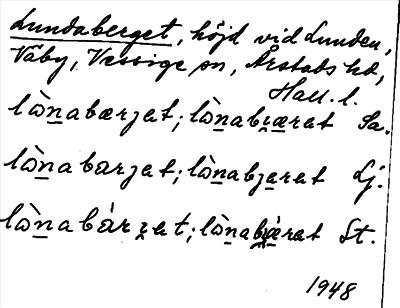 Lundaberget, höjd vid Lunden,
Väby, Vessige sn, Årstads hd,
Hall. l.
lòn̲abærjet; lòn̲abjæret Sa.
lòn̲abarjet; lòn̲abjæret Lj.
lòn̲abàrjet; lòn̲abjæ̀ret St.
1948